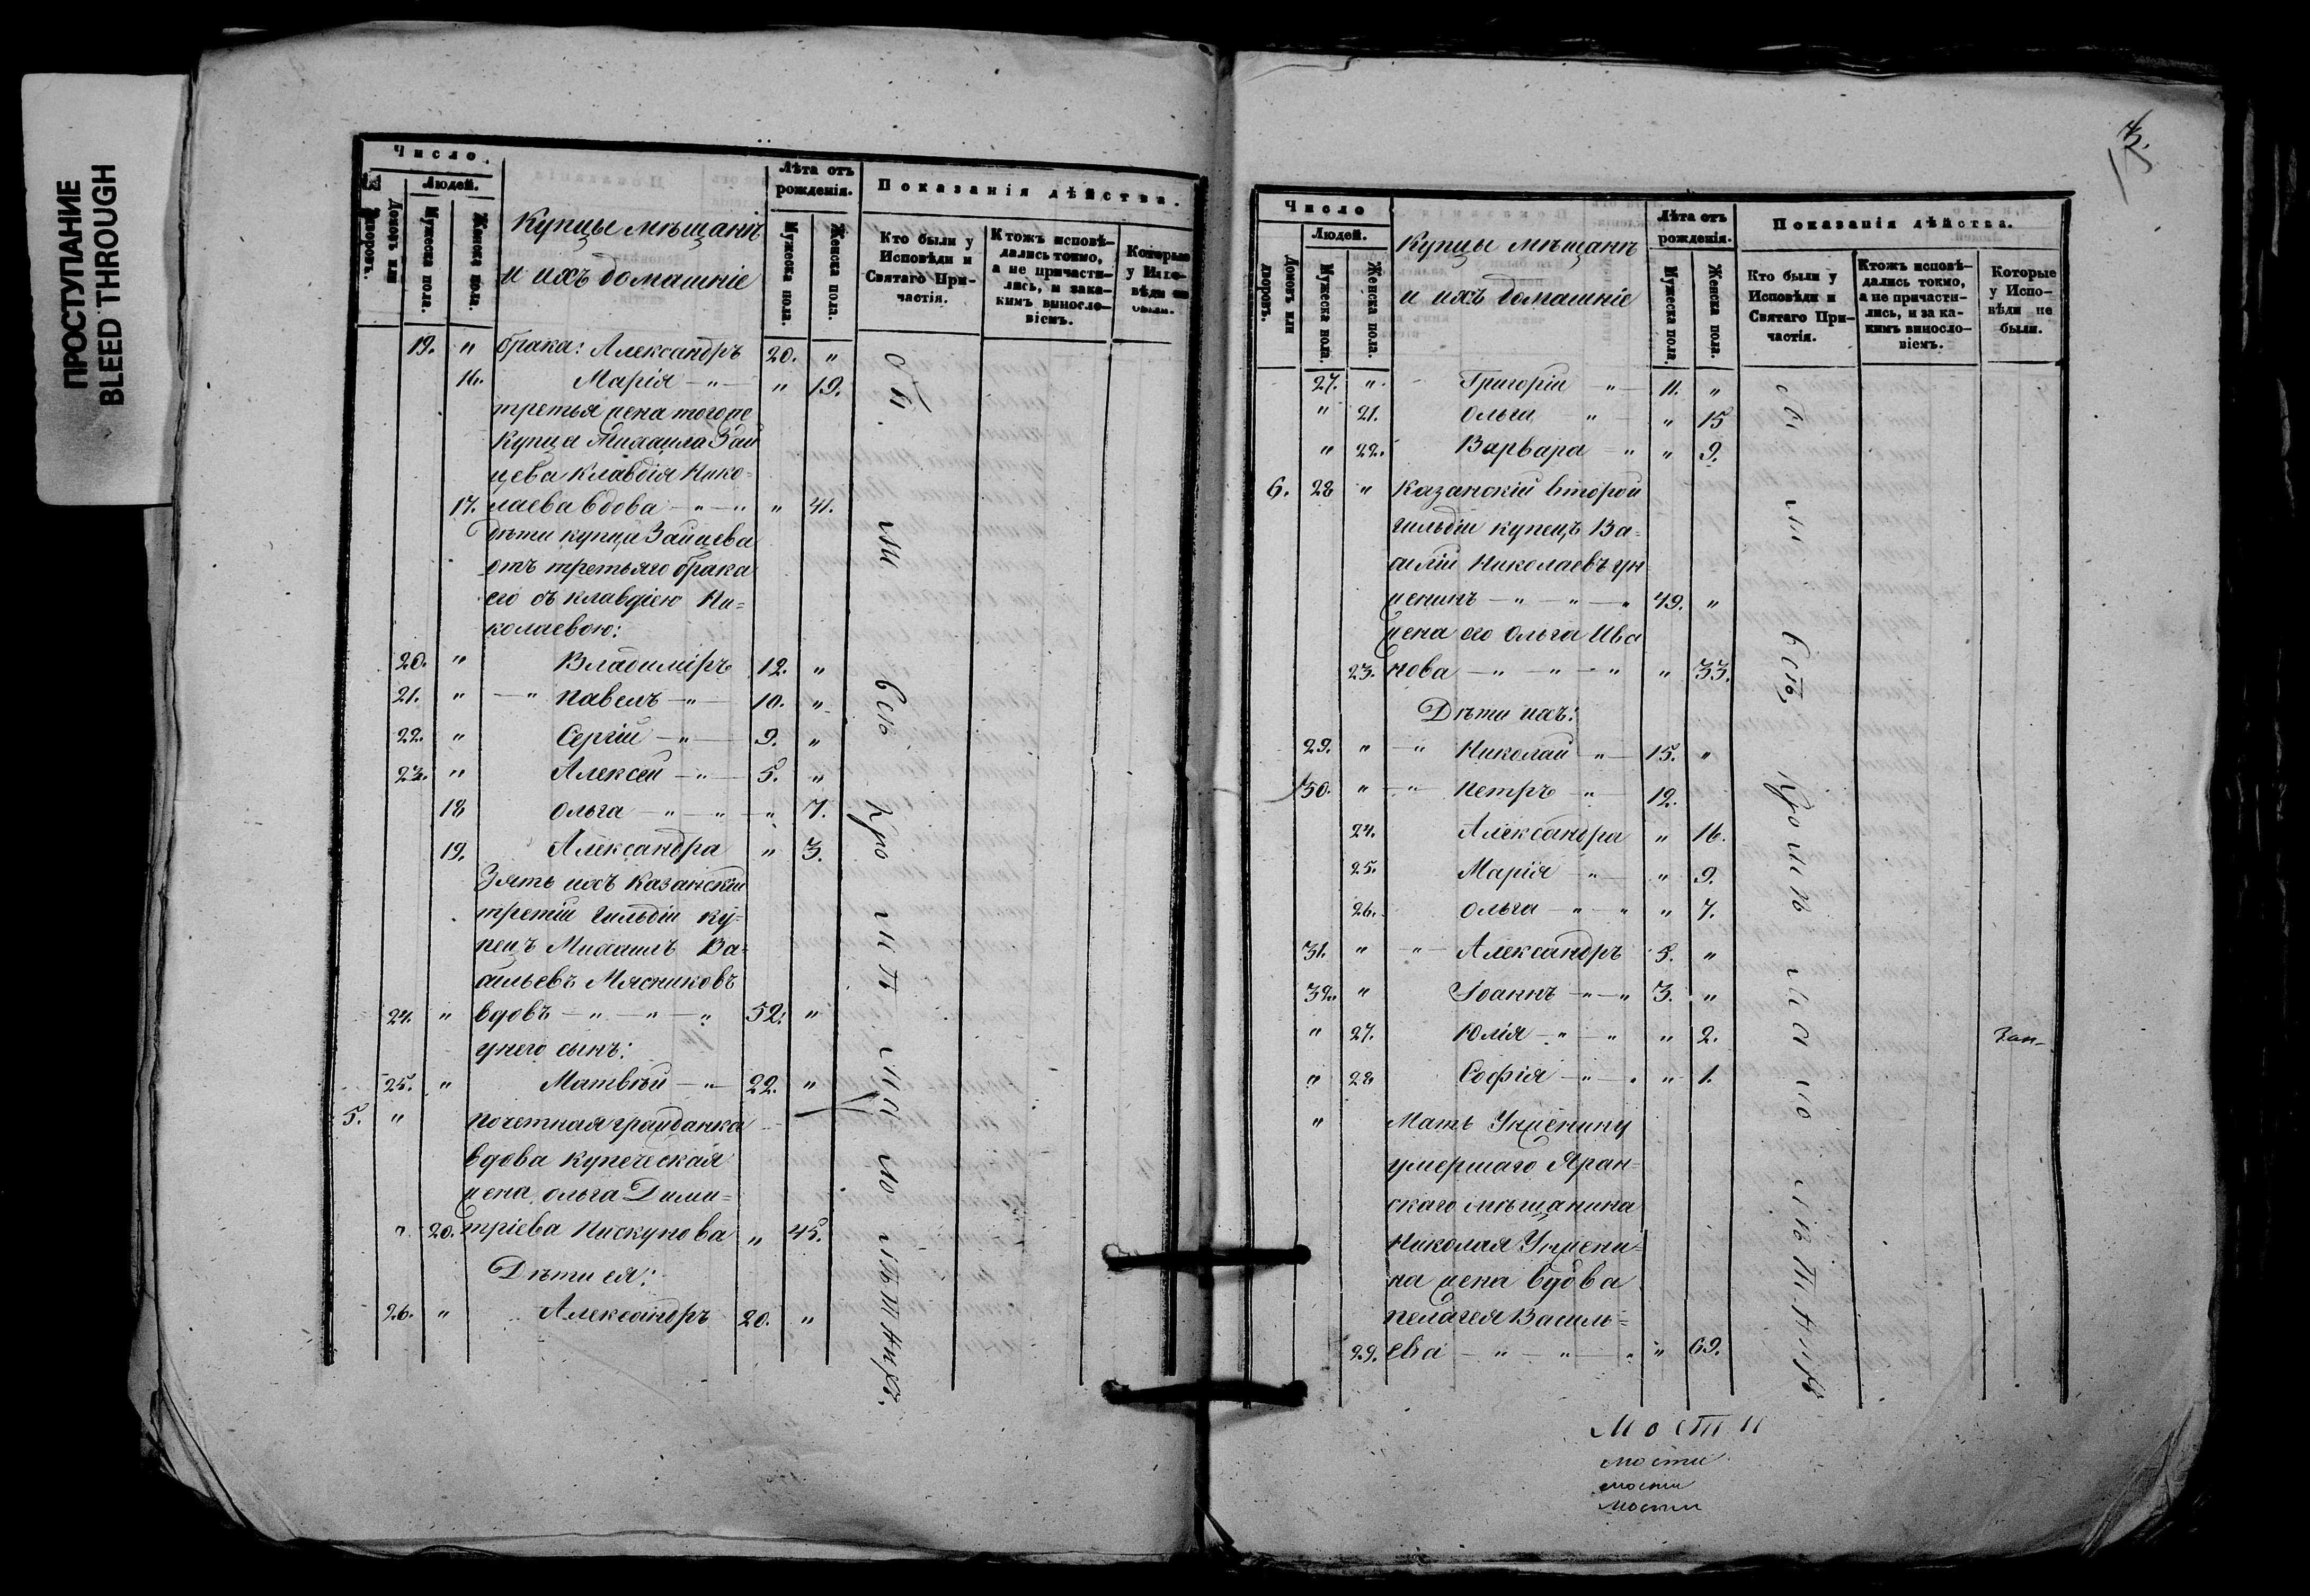 ПРОСТУПАНИЕ
BLEED THROUGH
Число.
Людей.
Домовъ или дворовъ.
Мужеска пола.
Женска пола.
Купцы мѣщанѣ
и ихъ домашніе
Лѣта отъ рожденія.
Мужеска пола.
Женска пола.
Показанія дѣйства.
Кто были у Исповѣди и Святаго Причастія.
Ктожъ исповѣдались токмо, а не причастились, и закакимъ винословіемъ.
Которые у Исповѣди не были.
19. " брака: Александръ 20. "
16. Марія - " - " 19.
третья жена тогоже
купца Михаила Зай
цева Клавдія Нико-
17. лаева вдова - " - " " 41.
Дѣти купца Зайцева
отъ третьяго брака
его съ Клавдіею Ни=
колаевою:
20. " Владиміръ 12. "
21. " - " Павелъ - " - 10. "
22. " Сергій - " - 9. "
23. " Алексей - " - 5. "
18 Ольга - " - " - " 7.
19. Александра " 3.
Зять ихъ Казанскій
третій гильдіи ку=
пецъ Михаилъ Ва=
сильевъ Мясниковъ
24. " вдовъ - " - " - " 52. "
унего сынъ:
25. " Матвѣй - " - 22. "
5. " почетная гражданка
вдова купеческая
жена Ольга Дими=
" 20. тріева Пискунова " 45.
Дѣти ея:
26. " Александръ 20. "
были
всѣ
кромѣ
малолѣтныхъ.
Число
Людей.
Домовъ или дворовъ.
Мужеска пола.
Женска пола.
Купцы мѣщанѣ
и ихъ домашніе
Лѣта отъ рожденія.
Мужеска пола.
Женска пола.
Показанія дѣйства.
Кто были у Исповѣди и Святаго Причастія.
Ктожъ исповѣдались токмо, а не причастились, и за какимъ винословіемъ.
Которые у Исповѣди не были.
27. " Григорій " - 11. "
" 21. Ольга - " - " 15
" 22. Варвара - " " 9.
6. 28 " Казанскій второй
гильдіи купецъ Ва=
силій Николаевъ Ун
женинъ - " - " - " 49. "
жена его Ольга Ива
23. нова - " - " - " " 33.
Дѣти ихъ:
29. " - " Николай - " - 15. "
30. " - " Петръ - " - 12.
24. Александра " 16.
25. Марія - " - " 9.
26. Ольга - " - " " 7.
31. " " - Александръ 5. "
32. " Іоаннъ - " - " 3. "
" 27. Юлія - " - " " 2.
" 28 Софія - " - " " 1.
" Мать Унженину
умершаго Яран=
скаго мѣщанина
Николая Унжени=
на жена вдова
Пелагея Василь=
29. ева - " - " - " " 69.
мости
мости
мости
мости